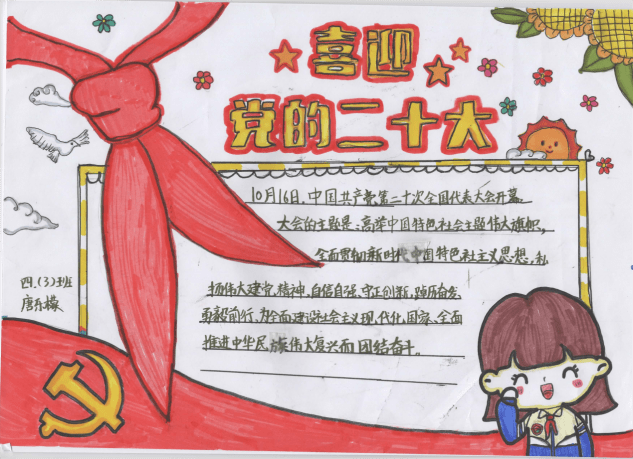 喜迎
党的二十大
10月16日,中国共产党第二十次全国代表大会开幕。
大会的主题是:高举中国特色社会主题伟大旗帜,
全面贯彻新时代中国特色社会主义思想,弘
扬伟大建党精神,自信自强、守正创新,踔厉奋发、
勇毅前行,为全面建设社会主义现代化国家、全面
推进中华民族伟大复兴而团结奋斗。
四.(3)班